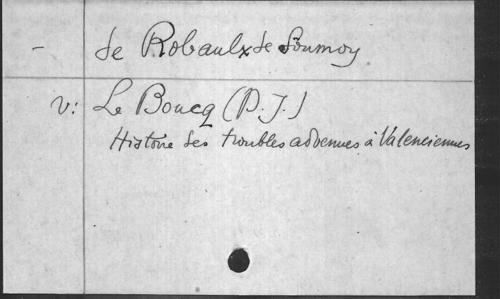 - de Robaulx de Soumoy
v: Le Boucq (P. J.)
Histoire des troubles advenues à Valenciennes